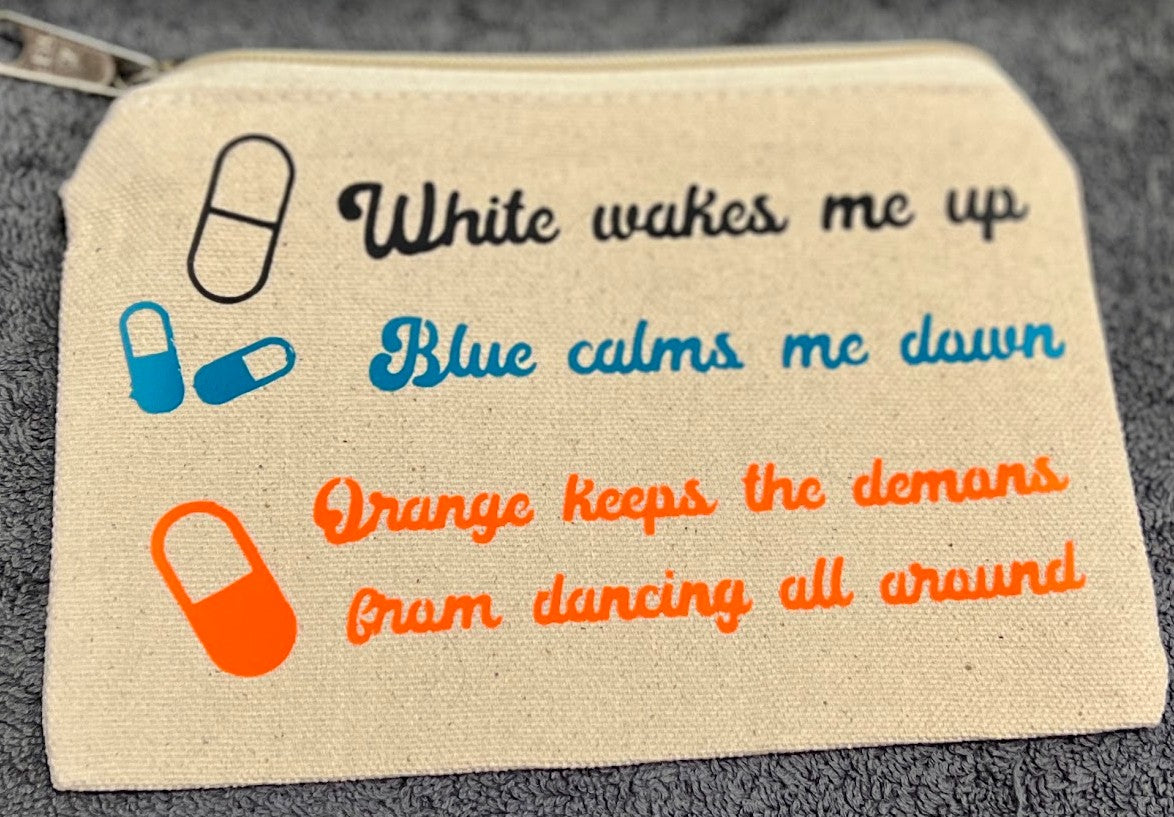 White wakes me up
Blue calms me down
Orange keeps the demons
from dancing all around